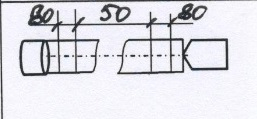 80 50 80